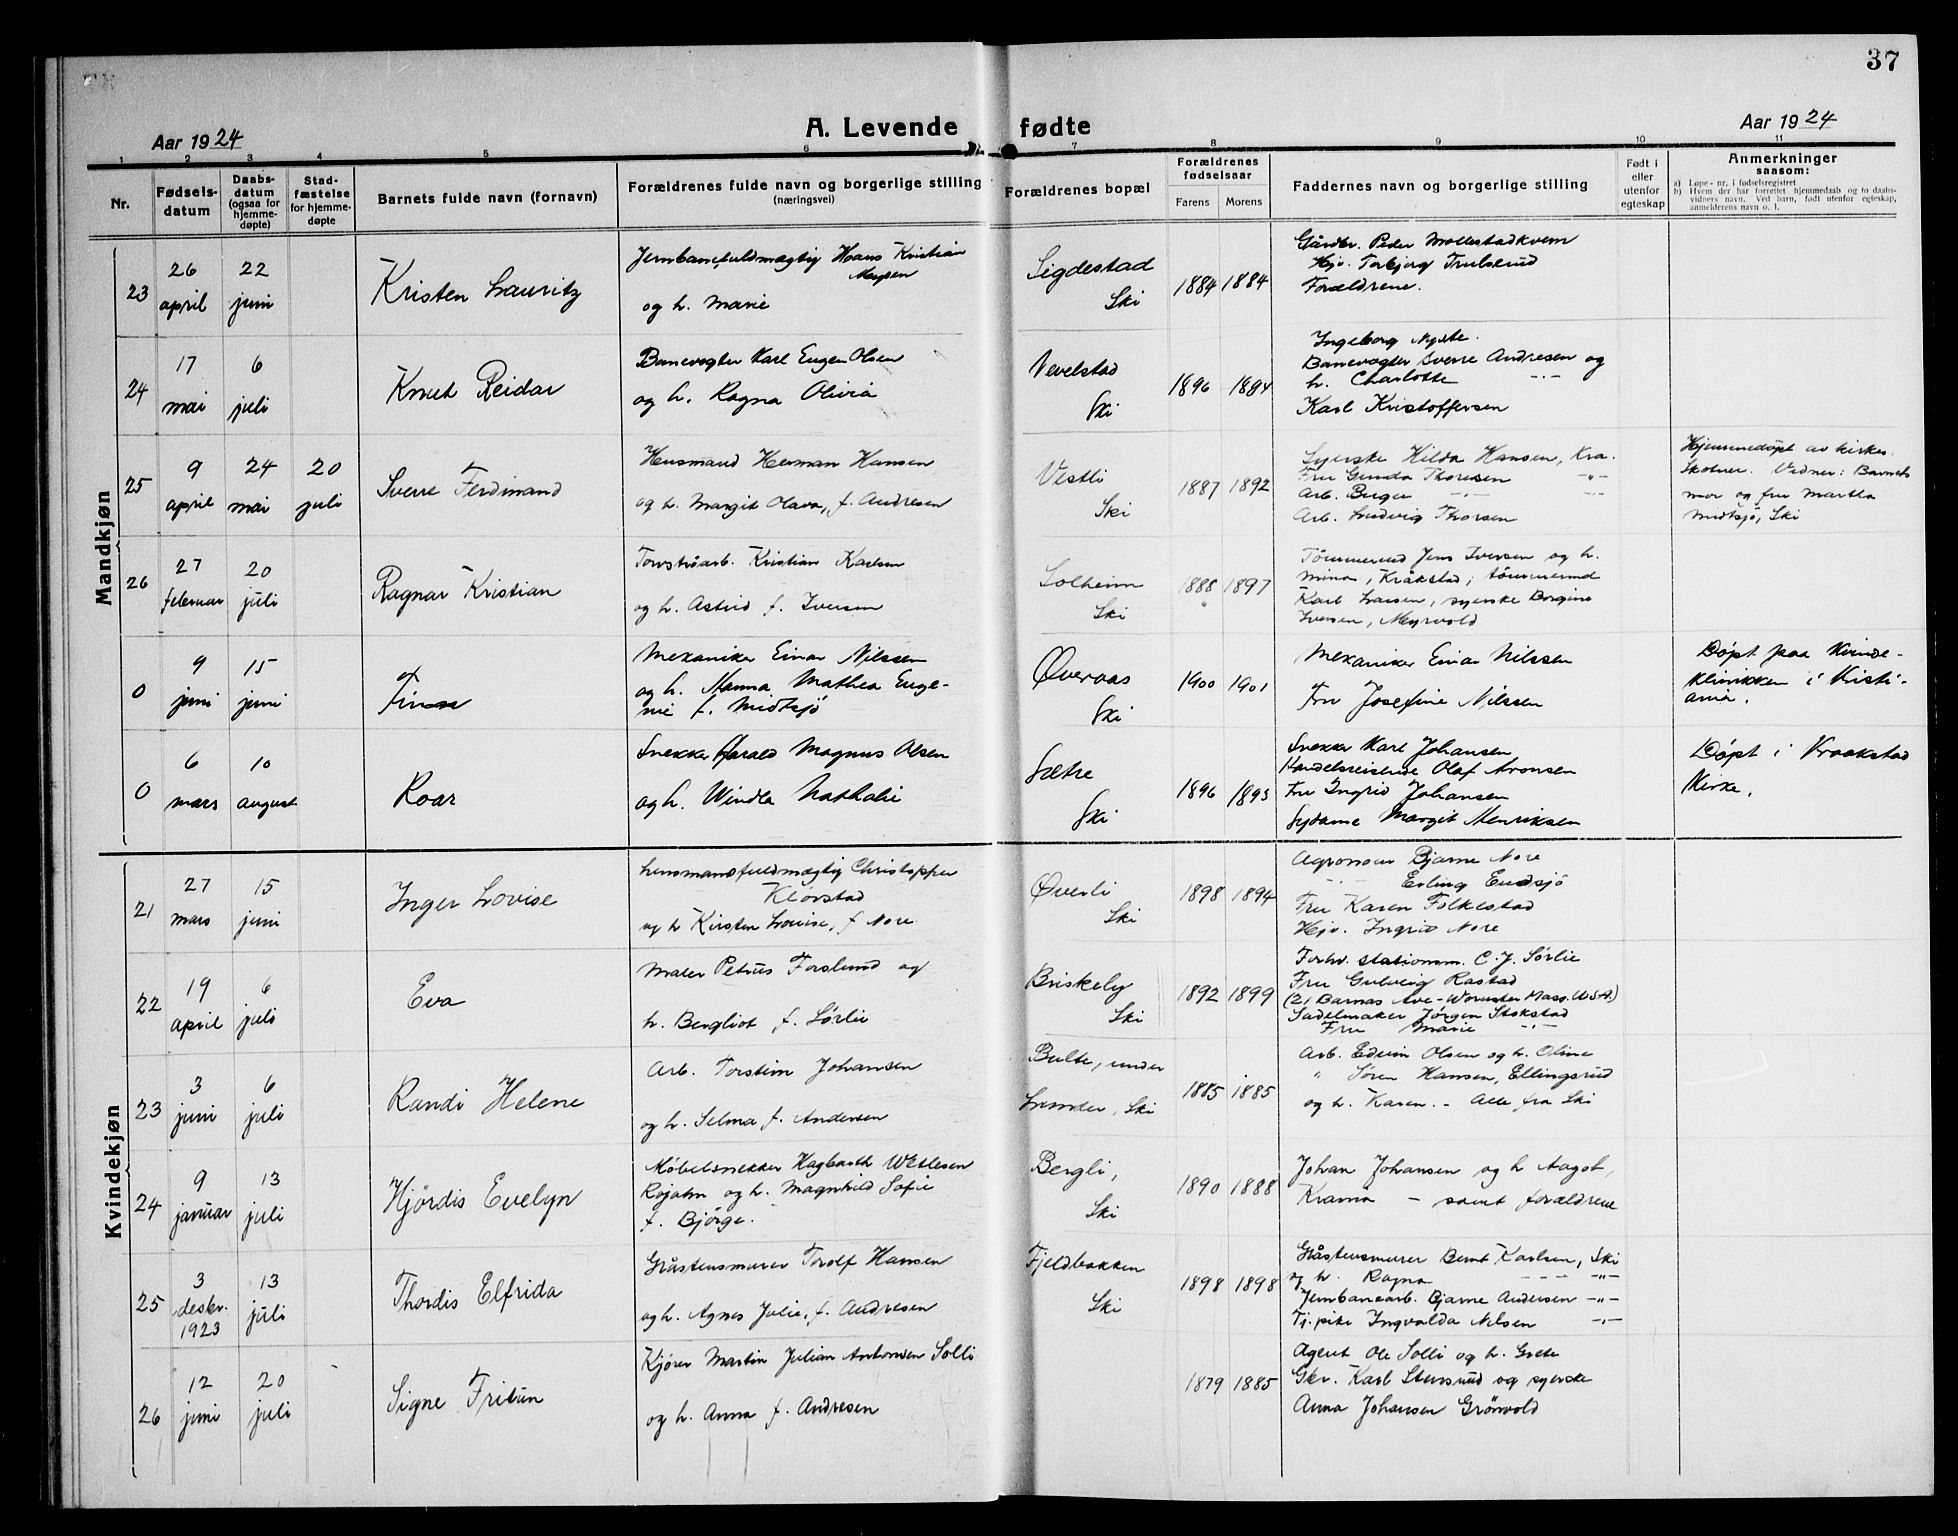 37
Aar 1924
A. Levende fødte
Aar 1924
1 2 3 4 5 6 7 8 9 10 11
Nr.
Fødsels-
datum
Daabs-
datum
(ogsaa for
hjemme-
døpte)
Stad-
fæstelse
for hjemme-
døpte
Barnets fulde navn (fornavn)
Forældrenes fulde navn og borgerlige stilling
(næringsvei)
Forældrenes bopæl
Forældrenes
fødselsaar
Farens Morens
Faddernes navn og borgerlige stilling
Født i
eller
utenfor
egteskap
Anmerkninger
saasom:
a) Løpe-nr. i fødselsregistret
b) Hvem der har forrettet hjemmedaab og to daabs-
vidners navn. Ved barn, født utenfor egteskap,
anmelderens navn o. l.
Mandkjøn
23
26
april
22
juni
Kristen Lauritz
Jernbanefuldmægtig Hans Kristian
og h. Marie
Sigdestad
Ski
1884 1884
Gårdbr. Peder Mollestadkvern
Hjv. Torbjørg Trulserud
Forældrene.
24
17
mai
6
juli
Knut Reidar
Banevogter Karl Eugen Olsen
og h. Ragna Olivia
Vevelstad
Ski
1896 1894
Ingeborg
Banevogter Sverre Andresen og
h. Charlotte -"-
Karl Kristoffersen
25
9
april
24
mai
20
juli
Sverre Ferdinand
Husmand Herman Hansen
og h. Margit Olava, f. Andresen
Vestli
Ski
1887 1892
Syerske Hilda Hansen, Kra.
Fru Gunda Thoresen -"-
Arb. Birger -"- -"-
Arb. Ludvig Thorsen
Hjemmedøpt av kirkes.
Skotner. Vidner: Barnets
mor og fru Martha
Midtsjø, Ski
26
27
februar
20
juli
Ragnar Kristian
Torvstrøarb. Kristian Karlsen
og h. Astrid f. Iversen
Solheim
Ski
1888 1897
Tömmermd Jens Iversen og h.
Mina, Kråkstad; tömmermd
Karl Larsen, syerske Borgine
Iversen, Myrvold
0
9
juni
15
juni
Finn
Mekaniker Einar Nilssen
og h. Manna Mathea Euge-
nie f. Midtsjø
Øveraas
Ski
1900 1901
Mekaniker Einar Nilssen
Fru Josefine Nilssen
Døpt paa Kvinde-
klinikken i Kristi-
ania.
0
6
mars
10
august
Roar
Snekker Harald Magnus Olsen
og h. Windla Nathalie
Sætre
Ski
1896 1893
Snekker Karl Johansen
Handelsreisende Olaf Aronsen
Fru Ingrid Johansen
Sydame Margit Henriksen
Døpt i Kraakstad
Kirke.
Kvindekjøn
21
27
mars
15
juni
Inger Lovise
Lensmandsfuldmægtig Christopher
Klorstad
og h Kirsten Louise, f. Nore
Øverli
Ski
1898 1894
Agronom Bjarne Nore
-"- Erling Endsjö
Fru Karen Folkestad
Hjv. Ingrid Nore
22
19
april
6
juli
Eva
Maler Petrus Forslund og
h. Bergliot f. Sørlie
Briskeby
Ski
1892 1899
Forhv. stationsm. C. J. Sørlie
Fru Gulveig Rastad
(21 Barnas Ave - Worcester Mass. U.S.A.)
Sadelmaker Jørgen Stokstad
Fru Marie -"-
23
3
juni
6
juli
Randi Helene
Arb. Torstein Johansen
og h. Selma f. Andersen
Bulte, under
Lunder, Ski
1885 1885
Arb. Edvin Olsen og h. Oline
" Søren Hansen, Ellingsrud
og h. Karen. - Alle fra Ski
24
9
januar
13
juli
Hjördis Evelyn
Møbelsnekker Hagbarth Wetlesen
Røjahn og h. Magnhild Sofie
f. Bjørge.
Bergli,
Ski
1890 1888
Johan Johansen og h Aagot,
Krania - samt forældrene
25
3
desbr.
1923
13
juli
Thordis Elfrida
Gråstensmurer Torolf Hansen
og h. Agnes Julie, f. Andresen
Fjeldbakken
Ski
1898 1898
Gråstensmurer Bernt Karlsen, Ski
og h. Ragna - - - -"-
Jernbanearb. Bjarne Andersen -"-
Tj.pike Ingvalda Nilsen -"-
26
12
juni
20
juli
Signe Fritun
Kjører Martin Julian Antonsen Solli
og h. Anna f. Andresen
1879 1885
Agent Ole Solli og h. Grete
Gbr. Karl Stensrud og syerske
Anna Johansen Grönvold